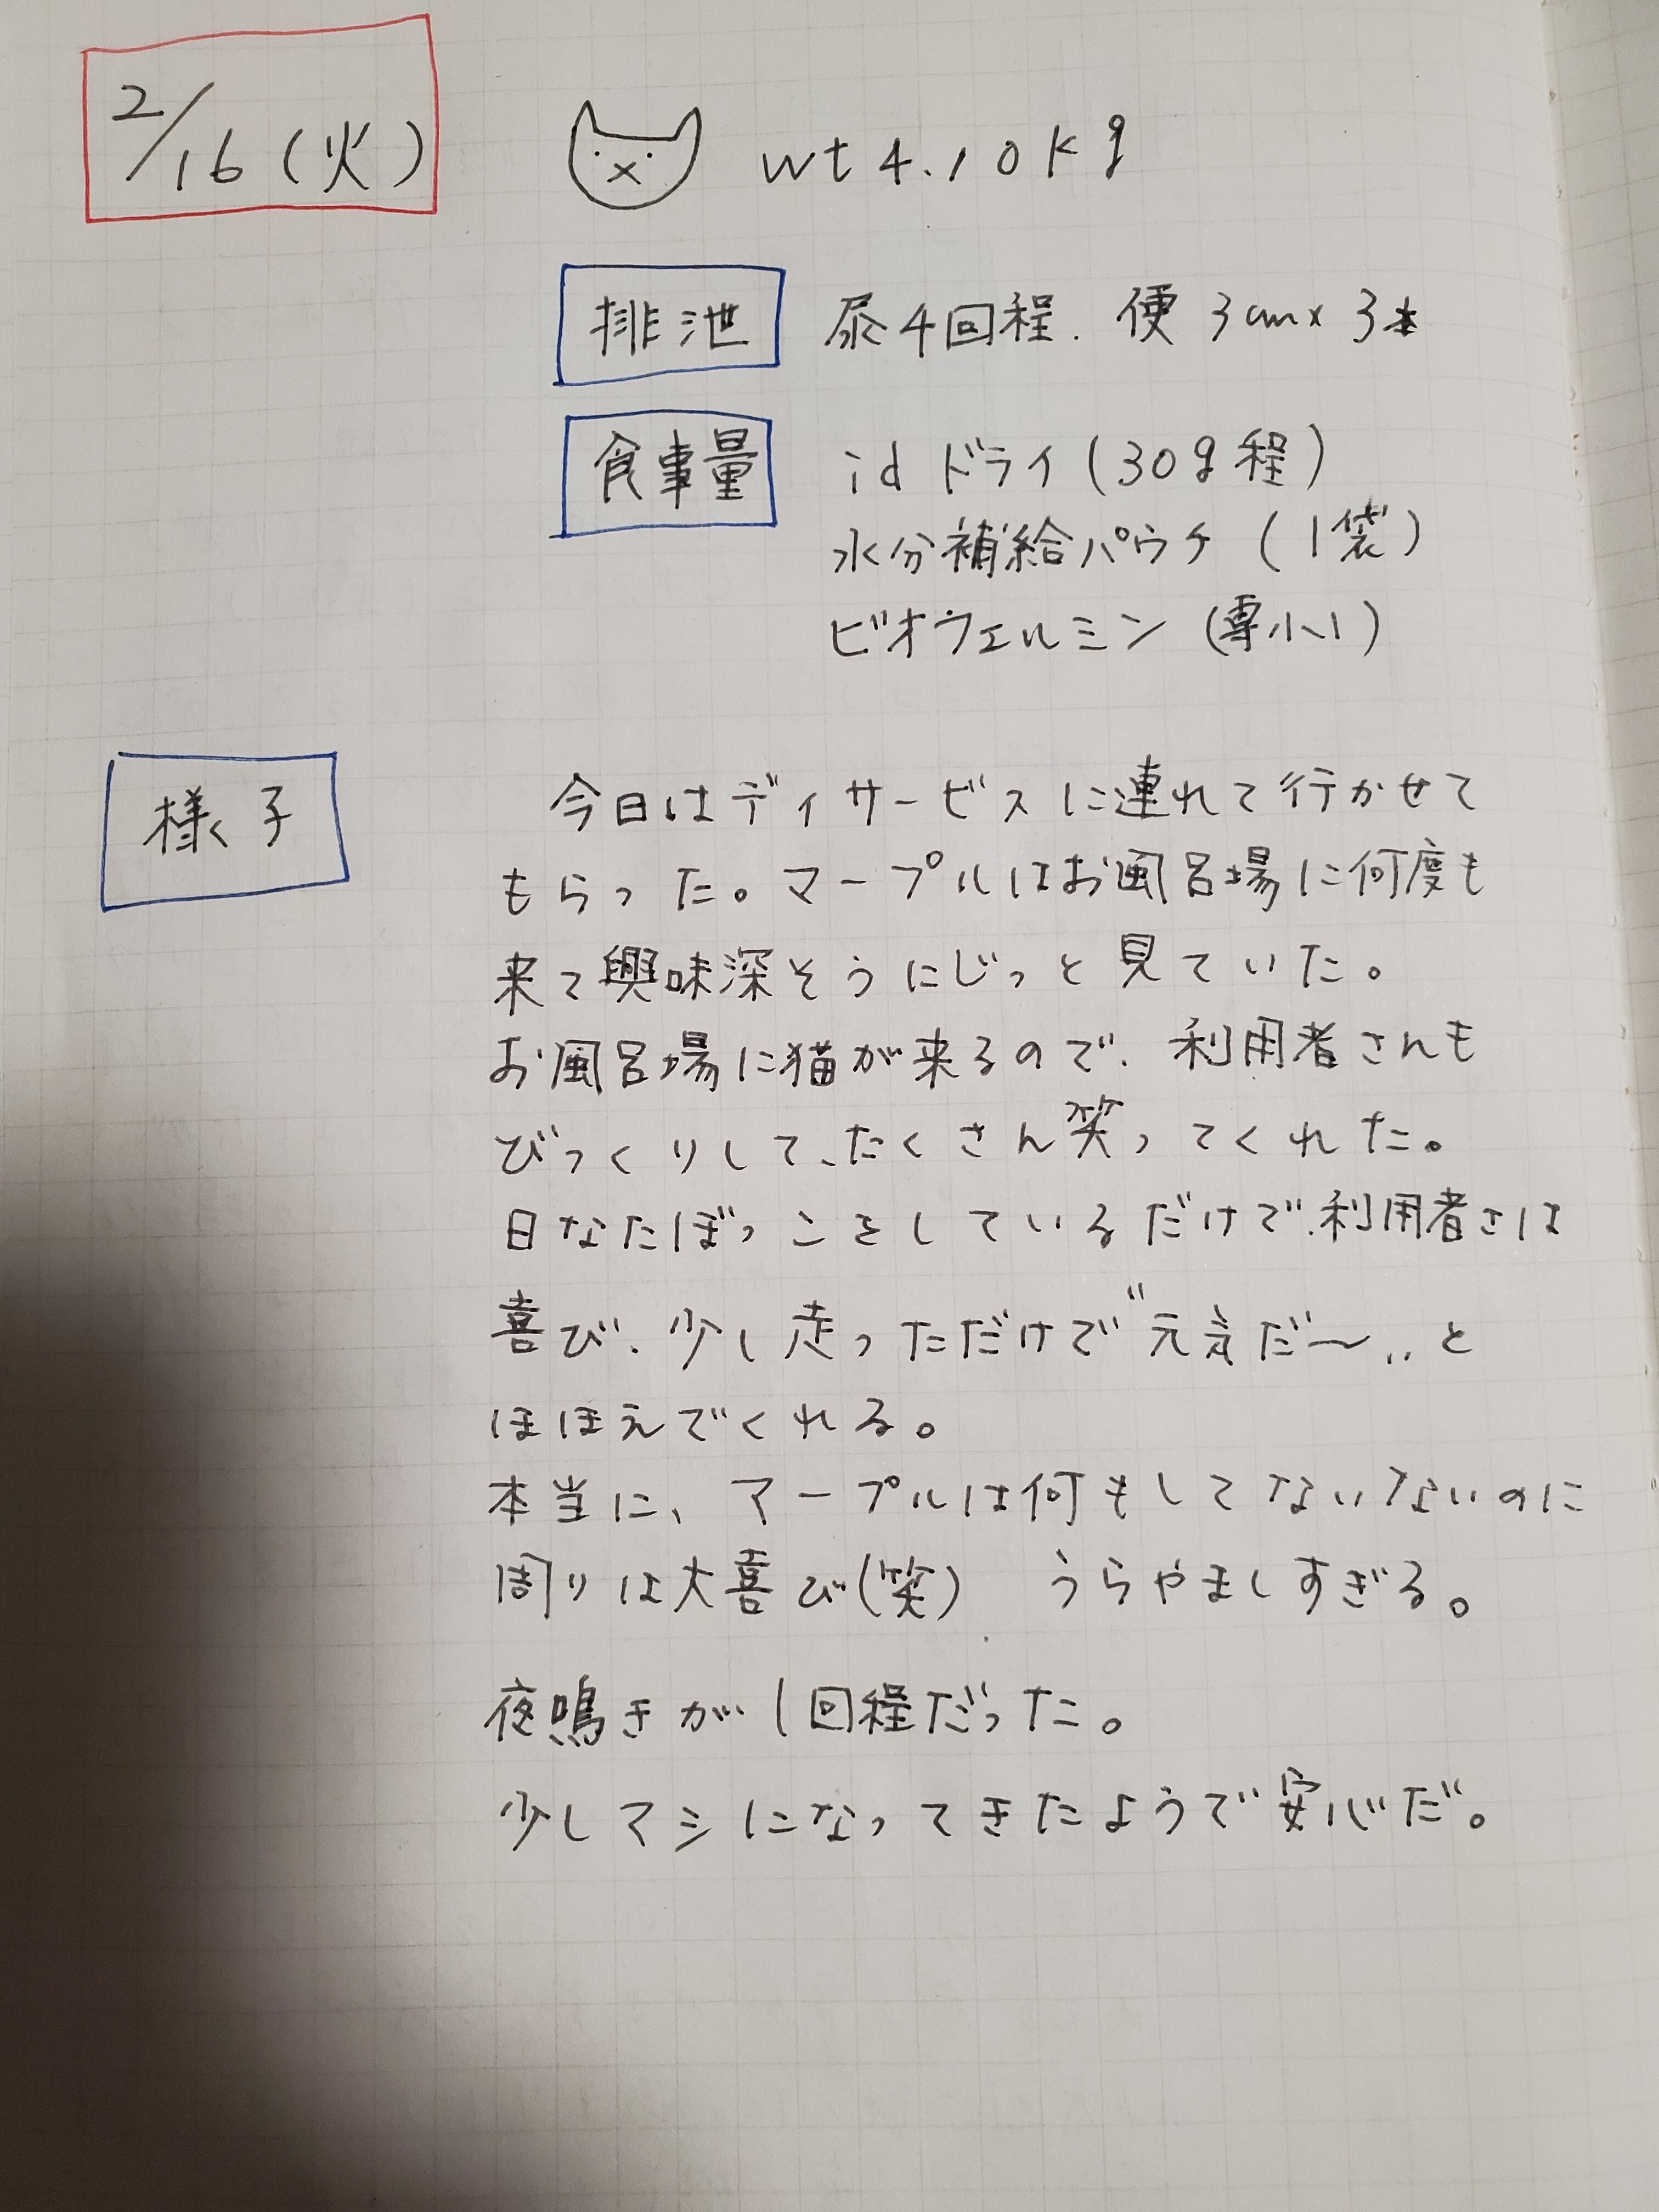 2/16(火)
wt 4.10kg
排泄 尿4回程. 便 3cm×3本
食事量 id ドライ(30g程)
水分補給パウチ(1袋)
ビオフェルミン(専小1)
様子 今日はディサービスに連れて行かせて
もらった。マープルはお風呂場に何度も
来て興味深そうにじっと見ていた。
お風呂場に猫が来るので、利用者さんも
びっくりして、たくさん笑ってくれた。
日なたぼっこをしているだけで、利用者さは
喜び、少し走っただけで"元気だ〜"と
ほほえでくれる。
本当に、マープルは何もしてないないのに
周りは大喜び(笑) うらやましすぎる。
夜鳴きが1回程だった。
少しマシになってきたようで安心だ。